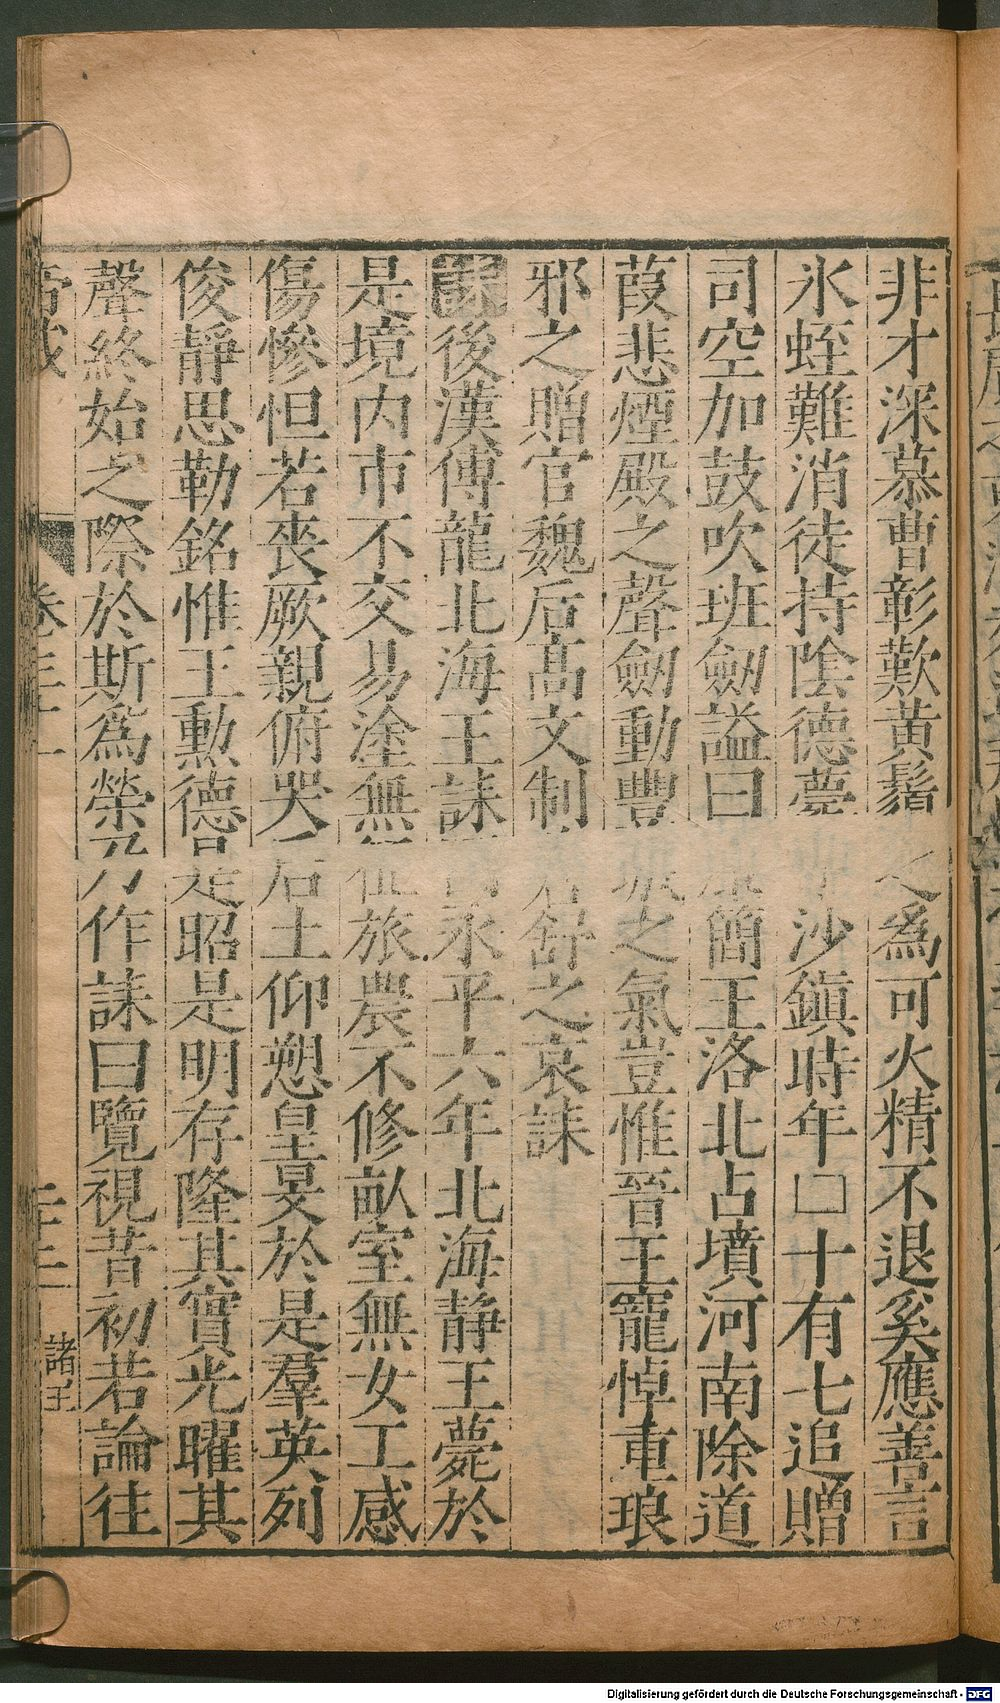 非才深慕曹彰歎黃鬚之為可火精不退奚應善言
氷蛭難消徒持陰德薨沙鎮時年□十有七追贈
司空加鼓吹班劒謚曰簡王洛北占墳河南除道
葭悲煙殿之聲劒動豐城之氣豈惟晉王寵悼重琅
邪之贈官魏后高文制舒之哀誄
誄後漢傅龍北海王誄永平六年北海静王薨於
是境内市不交易塗無征旅農不修畝室無女工感
傷慘怛若喪厥親俯哭后土仰愬皇旻於是羣英列
俊静思勒銘惟王勲德是昭是明存隆其實光曜其
聲終始之際於斯為榮乃作誄曰覽視昔初若論往
卷
諸王
Digitalisierung gefördert durch die Deutsche Forschungsgemeinschaft - DFG